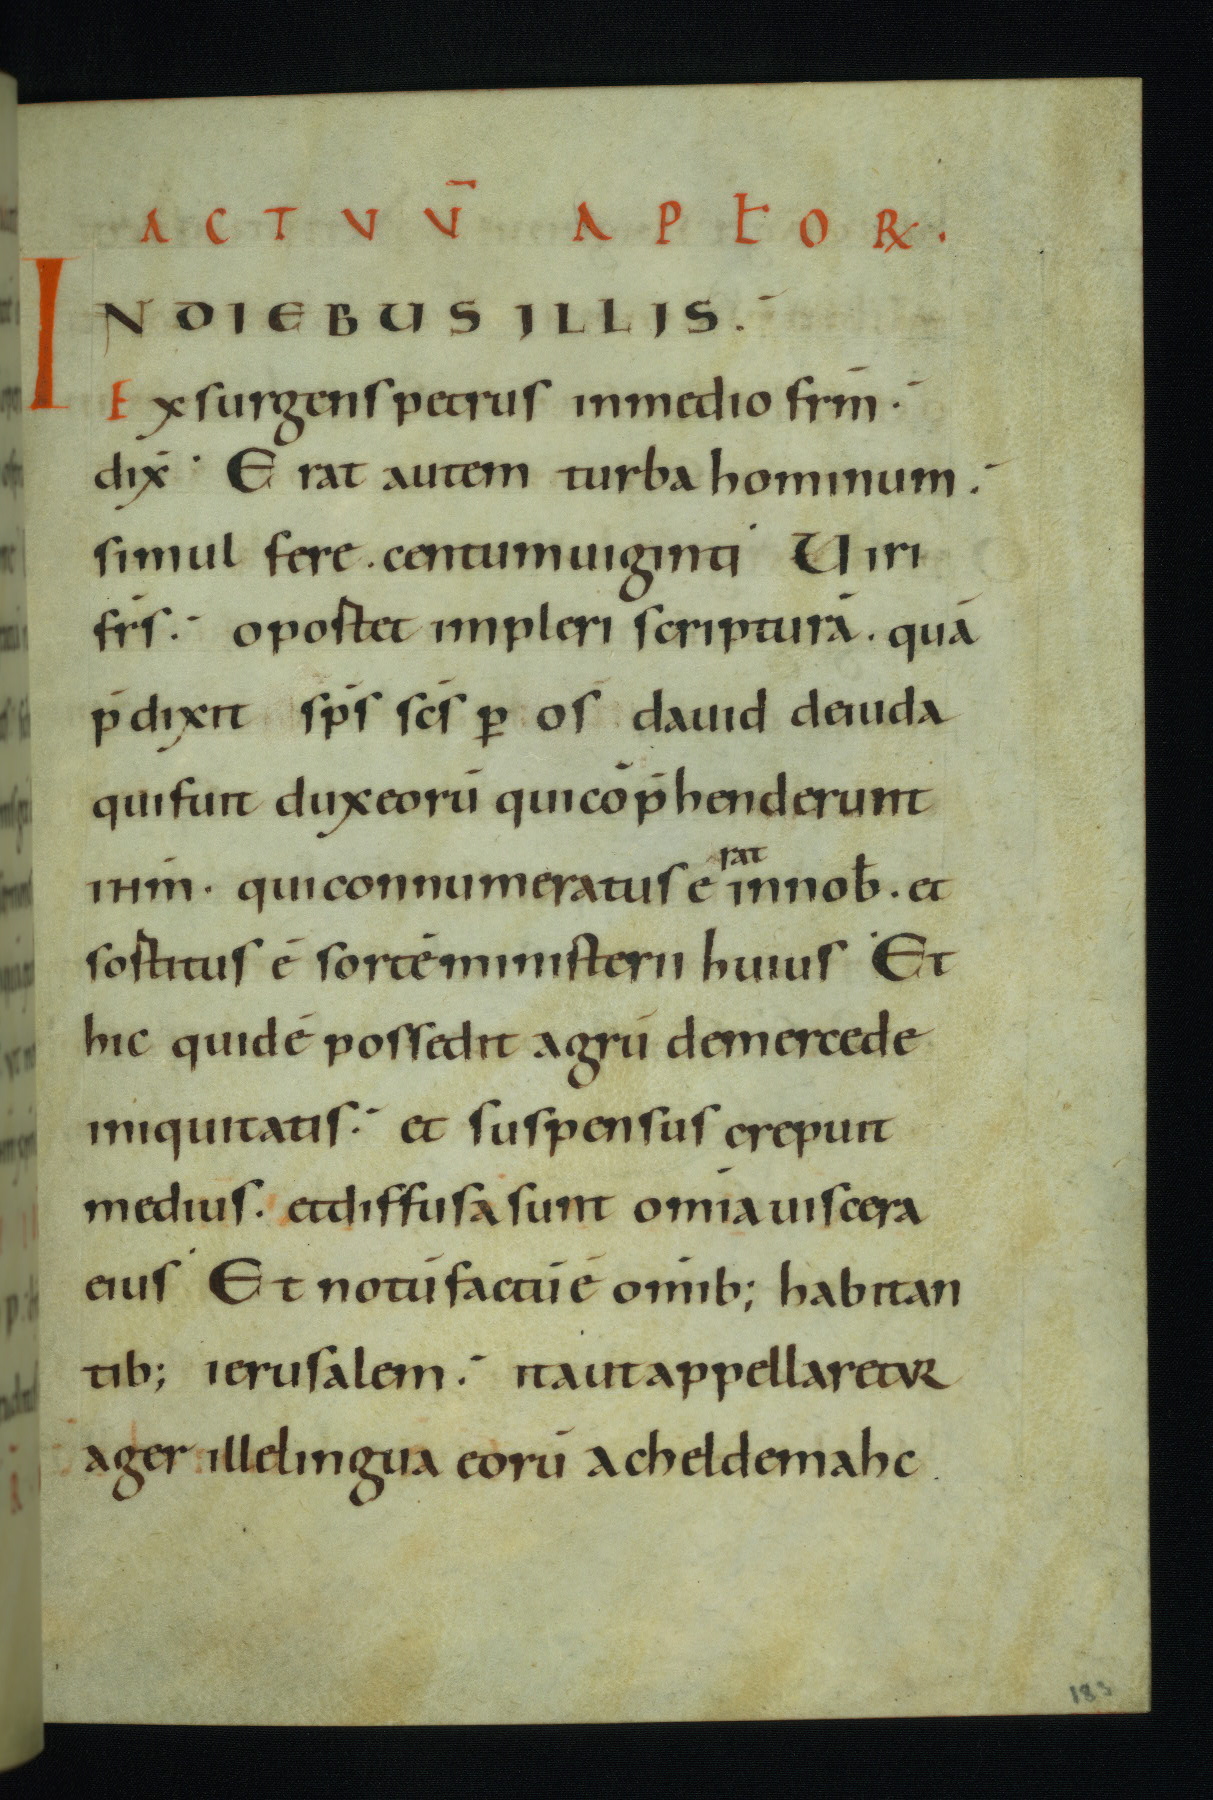 ACTVV̄ APŁOꝶ.
INDIEBUS ILLIS.
Exsurgens petrus inmedio frm̄.
dix̄. Erat autem turba hominum.
simul fere. centumuiginti. Uiri
fr̄s. opostet impleri scripturā. quā
p̄dixit sp̄s sc̄s ꝑ os dauid deiuda
quifuit duxeorū quicōp̄henderunt
ihm̄. quiconnumeratus ērat innob̄. et
sostitus ē sortēministerii huius. Et
hic quidē possedit agrū demercede
iniquitatis. et suspensus crepuit
medius. etdiffusa sunt om̄ia uiscera
eius. Et notūfactūē om̄ib; habitan
tib; ierusalem. itautappellaretur
ager illelingua eorū acheldemahc.
183